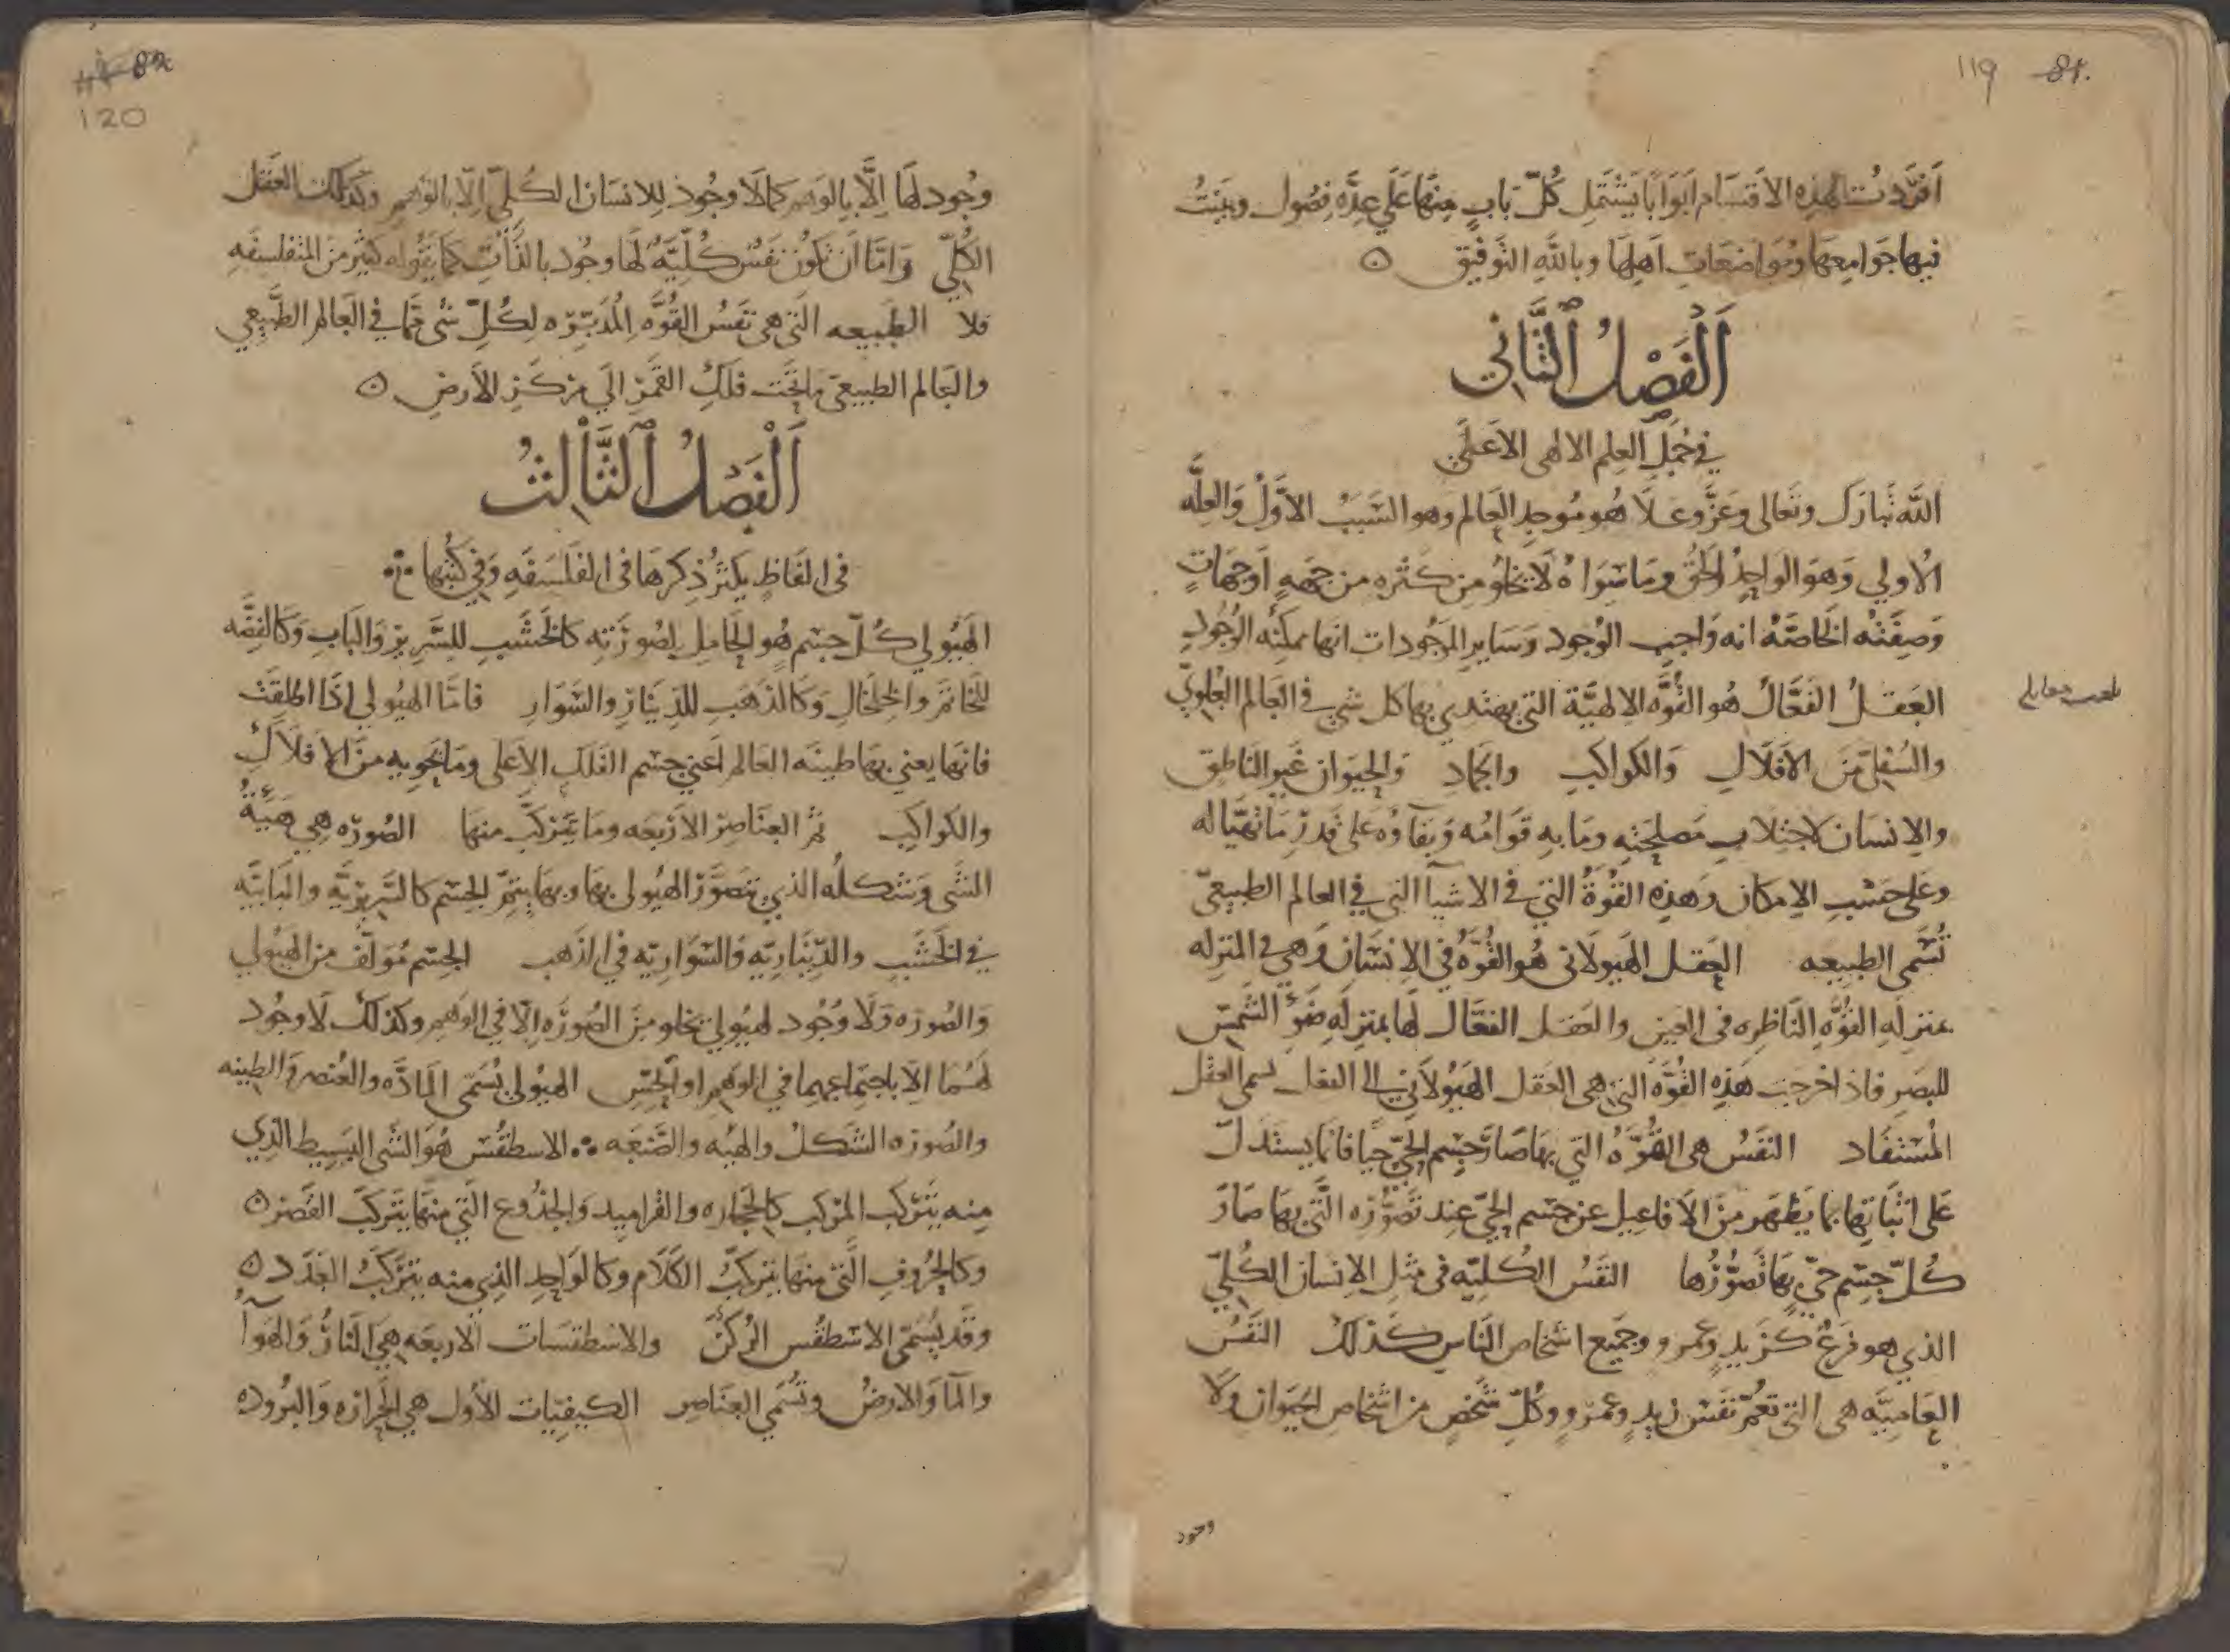 119 81.
أفردت لهذه الاقسام ابوابا يشتمل كل باب منها على عدة فصول وبينت
فيها جوامعها ومواضعات اهلها وبالله التوفيق ه
الفصل الثاني
في جمل العلم الالهى الاعلى
الله تبارك وتعالى وعز وعلا هو موجد العالم وهو السبب الأول والعلة
الاولى وهو الواحد الحق وما سواه لا يخلو من كثره من جهه او جهات
وصفته الخاصة انه واجب الوجود وساير الموجودات انها ممكنه الوجود
العقل الفعال هو القوة الالهية التي يهتدي بها كل شي في العالم العلوي
والسفلي من الافلاك والكواكب والجماد والحيوان غير الناطق
والانسان لاجتلاب مصلحته وما به قوامه وبقاؤه على قدر ما تهيا له
وعلى حسب الامكان وهذه القوة التي في الاشيآ التي في العالم الطبيعي
تسمى الطبيعه العقل الهيولاني هو القوة في الانسان وهي في المنزله
بمنزلة القوة الناظره في العين والعقل الفعال لها بمنزله ضوء الشمس
للبصر فاذا خرجت هذه القوة التي هي العقل الهيولاني الى الفعل تسمى العقل
المستفاد النفس هي القوة التي بها صار جسم الحي حيا فانما يستدل
على اثباتها بما يظهر من الافاعيل عن جسم الحي عند تصوره التي بها صار
كل جسم حي بها تصورها النفس الكلية في مثل الانسان الكلي
الذي هو فرع كزيد وعمرو وجميع اشخاص الناس كذلك النفس
العامية هي التي تعم نفس زيد وعمرو وكل شخص من اشخاص الحيوان ولا
وجود
82
120
وجود لها الا بالوهم كما لا وجود للانسان الكلي الا بالوهم وكذلك العقل
الكلي واما ان تكون نفس كلية لها وجود بالذات كما يقوله كثير من المتفلسفه
فلا الطبيعه التي هي نفس القوة المدبره لكل شى مما في العالم الطبيعي
والعالم الطبيعى ما تحت فلك القمر الى مركز الارض ه
الفصل الثالث
في الفاظ يكثر ذكرها في الفلسفه وفي كتبها
الهيولي كل جسم هو الحامل لصورته كالخشب للسرير والباب وكالفضه
للخاتم والخلخال وكالذهب للدينار والسوار فاما الهيولي اذا اطلقت
فانها يعني بها طينه العالم اعني جسم الفلك الاعلى وما يحويه من الافلاك
والكواكب ثم العناصر الاربعه وما يتركب منها الصوره هي هيئة
الشى وشكله الذي تتصور الهيولي بها وبها يتم الجسم كالسريرية والبابية
في الخشب والدينارية والسوارية في الذهب الجسم مؤلف من الهيولي
والصوره ولا وجود لهيولي يخلو من الصورة الا في الوهم وكذلك لا وجود
لهما الا باجتماعهما في الوهم او الحس الهيولي تسمى المادة والعنصر والطينه
والصوره الشكل والهيه والصنعه الاسطقس هو الشى البسيط الذي
منه يتركب المركب كالحجاره والقراميد والجذوع التي منها يتركب القصر ه
وكالحروف التي منها يتركب الكلام وكالواحد الذي منه يتركب العدد ه
وقد يسمى الاسطقس الركن والاسطقسات الاربعه هي النار والهوآ
والما والارض وتسمى العناصر الكيفيات الأول هي الحرارة والبروده